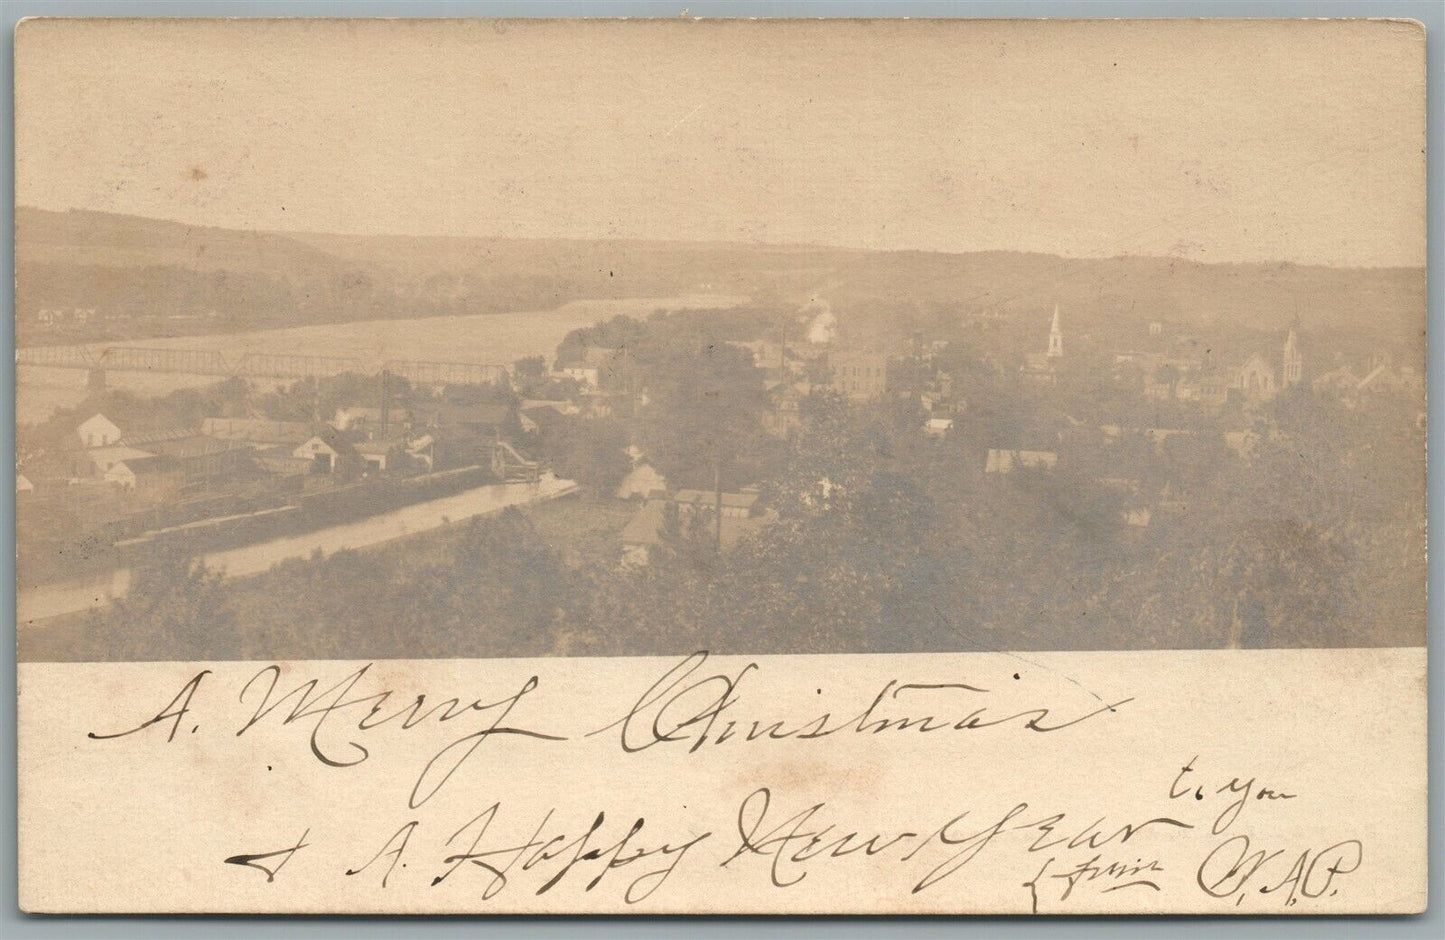 A. Merry Christmas
& A. Happy New Year to you
from W. A. P.